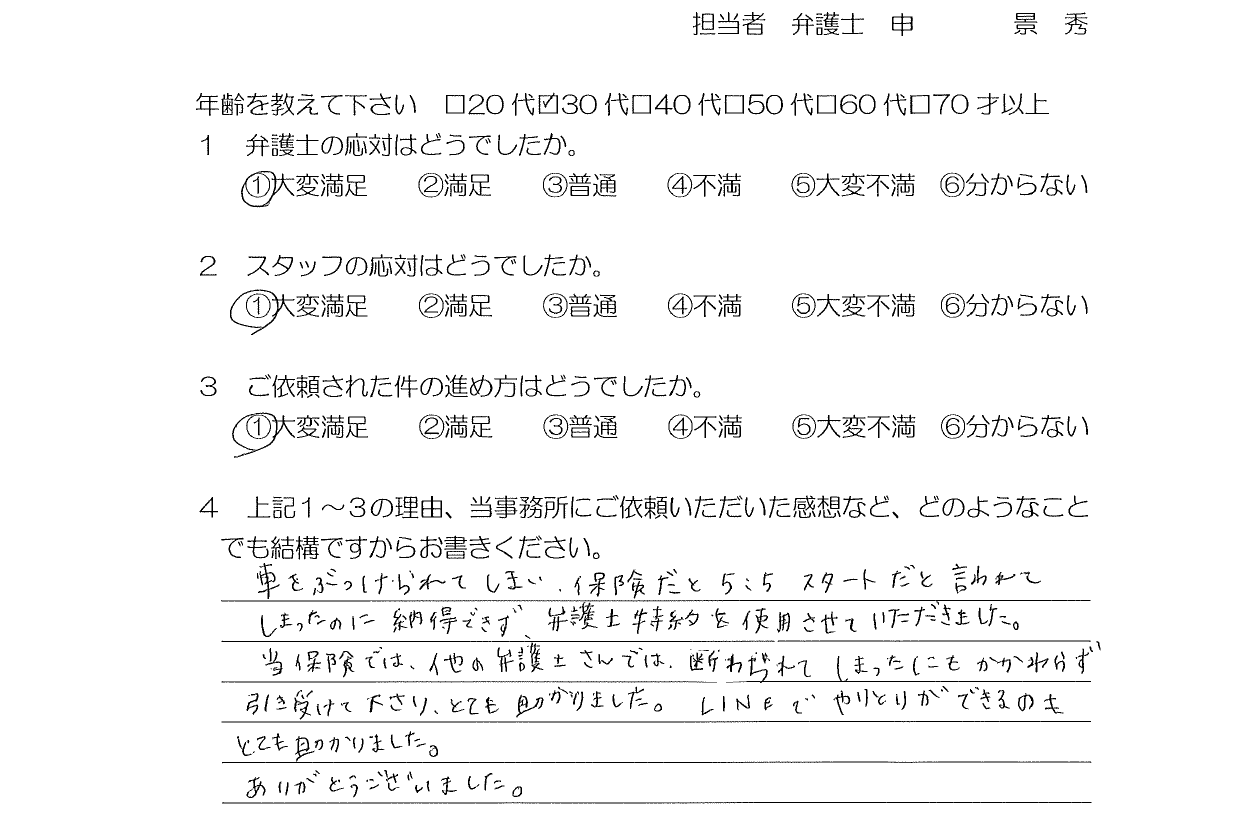 担当者　弁護士　申　　　　景　秀
年齢を教えて下さい　□20代☑30代□40代□50代□60代□70才以上
１　弁護士の応対はどうでしたか。
①大変満足　　②満足　　③普通　　④不満　　⑤大変不満　⑥分からない
２　スタッフの応対はどうでしたか。
①大変満足　　②満足　　③普通　　④不満　　⑤大変不満　⑥分からない
３　ご依頼された件の進め方はどうでしたか。
①大変満足　　②満足　　③普通　　④不満　　⑤大変不満　⑥分からない
４　上記１～３の理由、当事務所にご依頼いただいた感想など、どのようなこと
でも結構ですからお書きください。
車をぶつけられてしまい、保険だと5:5スタートだと言われて
しまったのに納得できず、弁護士特約を使用させていただきました。
当保険では、他の弁護士さんでは、断わられてしまったにもかかわらず
引き受けて下さり、とても助かりました。LINEでやりとりができるのも
とても助かりました。
ありがとうございました。